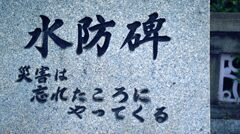 水防碑
災害は
忘れたころに
やってくる